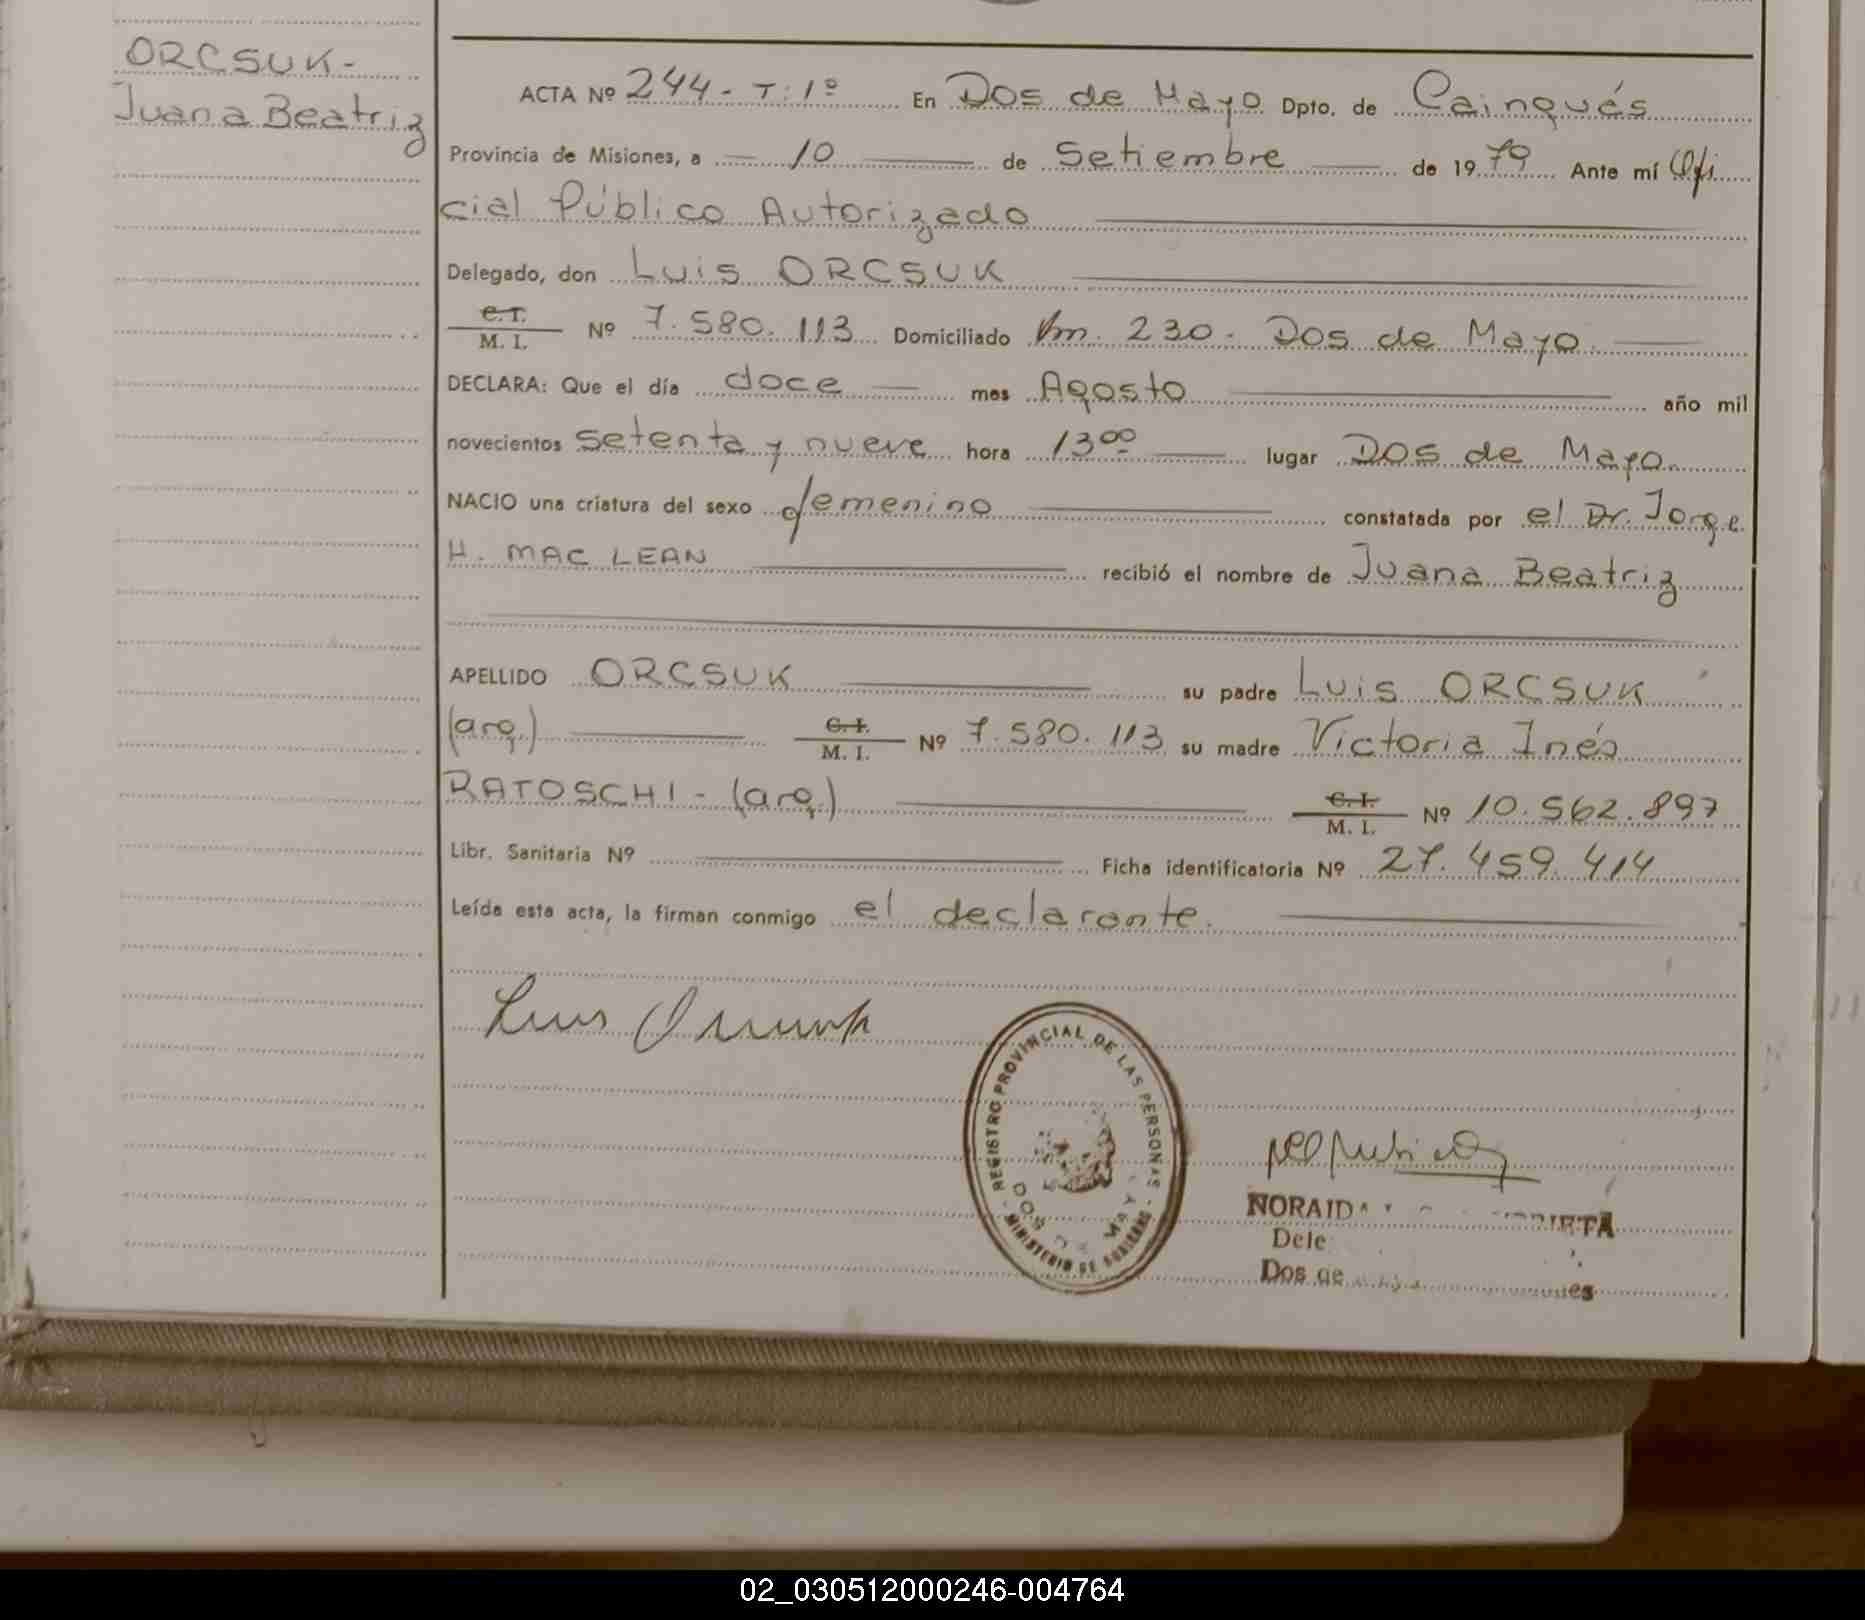 ORCSUK-
Juana Beatriz
ACTA Nº 244 - T: 1º En Dos de Mayo Dpto. de Caingués
Provincia de Misiones, a 10 de Setiembre de 1979 Ante mí Ofi
cial Público Autorizado
Delegado, don Luis ORCSUK
C. I.
M. I. Nº 7.580.113 Domiciliado Km. 230 - Dos de Mayo
DECLARA: Que el día doce mes Agosto año mil
novecientos setenta y nueve hora 13 00 lugar Dos de Mayo
NACIO una criatura del sexo femenino constatada por el Dr. Jorge
H. MAC LEAN recibió el nombre de Juana Beatriz
APELLIDO ORCSUK su padre Luis ORCSUK
(arg.) C. I. M. I. Nº 7.580.113 su madre Victoria Inés
RATOSCHI - (arg.) C. I. M. I. Nº 10.562.897
Libr. Sanitaria Nº Ficha identificatoria Nº 27.459.414
Leída esta acta, la firman conmigo el declarante.
Luis
REGISTRO PROVINCIAL DE LAS PERSONAS
DOS DE MAYO
MINISTERIO DE GOBIERNO
NORAIDA
Dele
Dos de
02_030512000246-004764